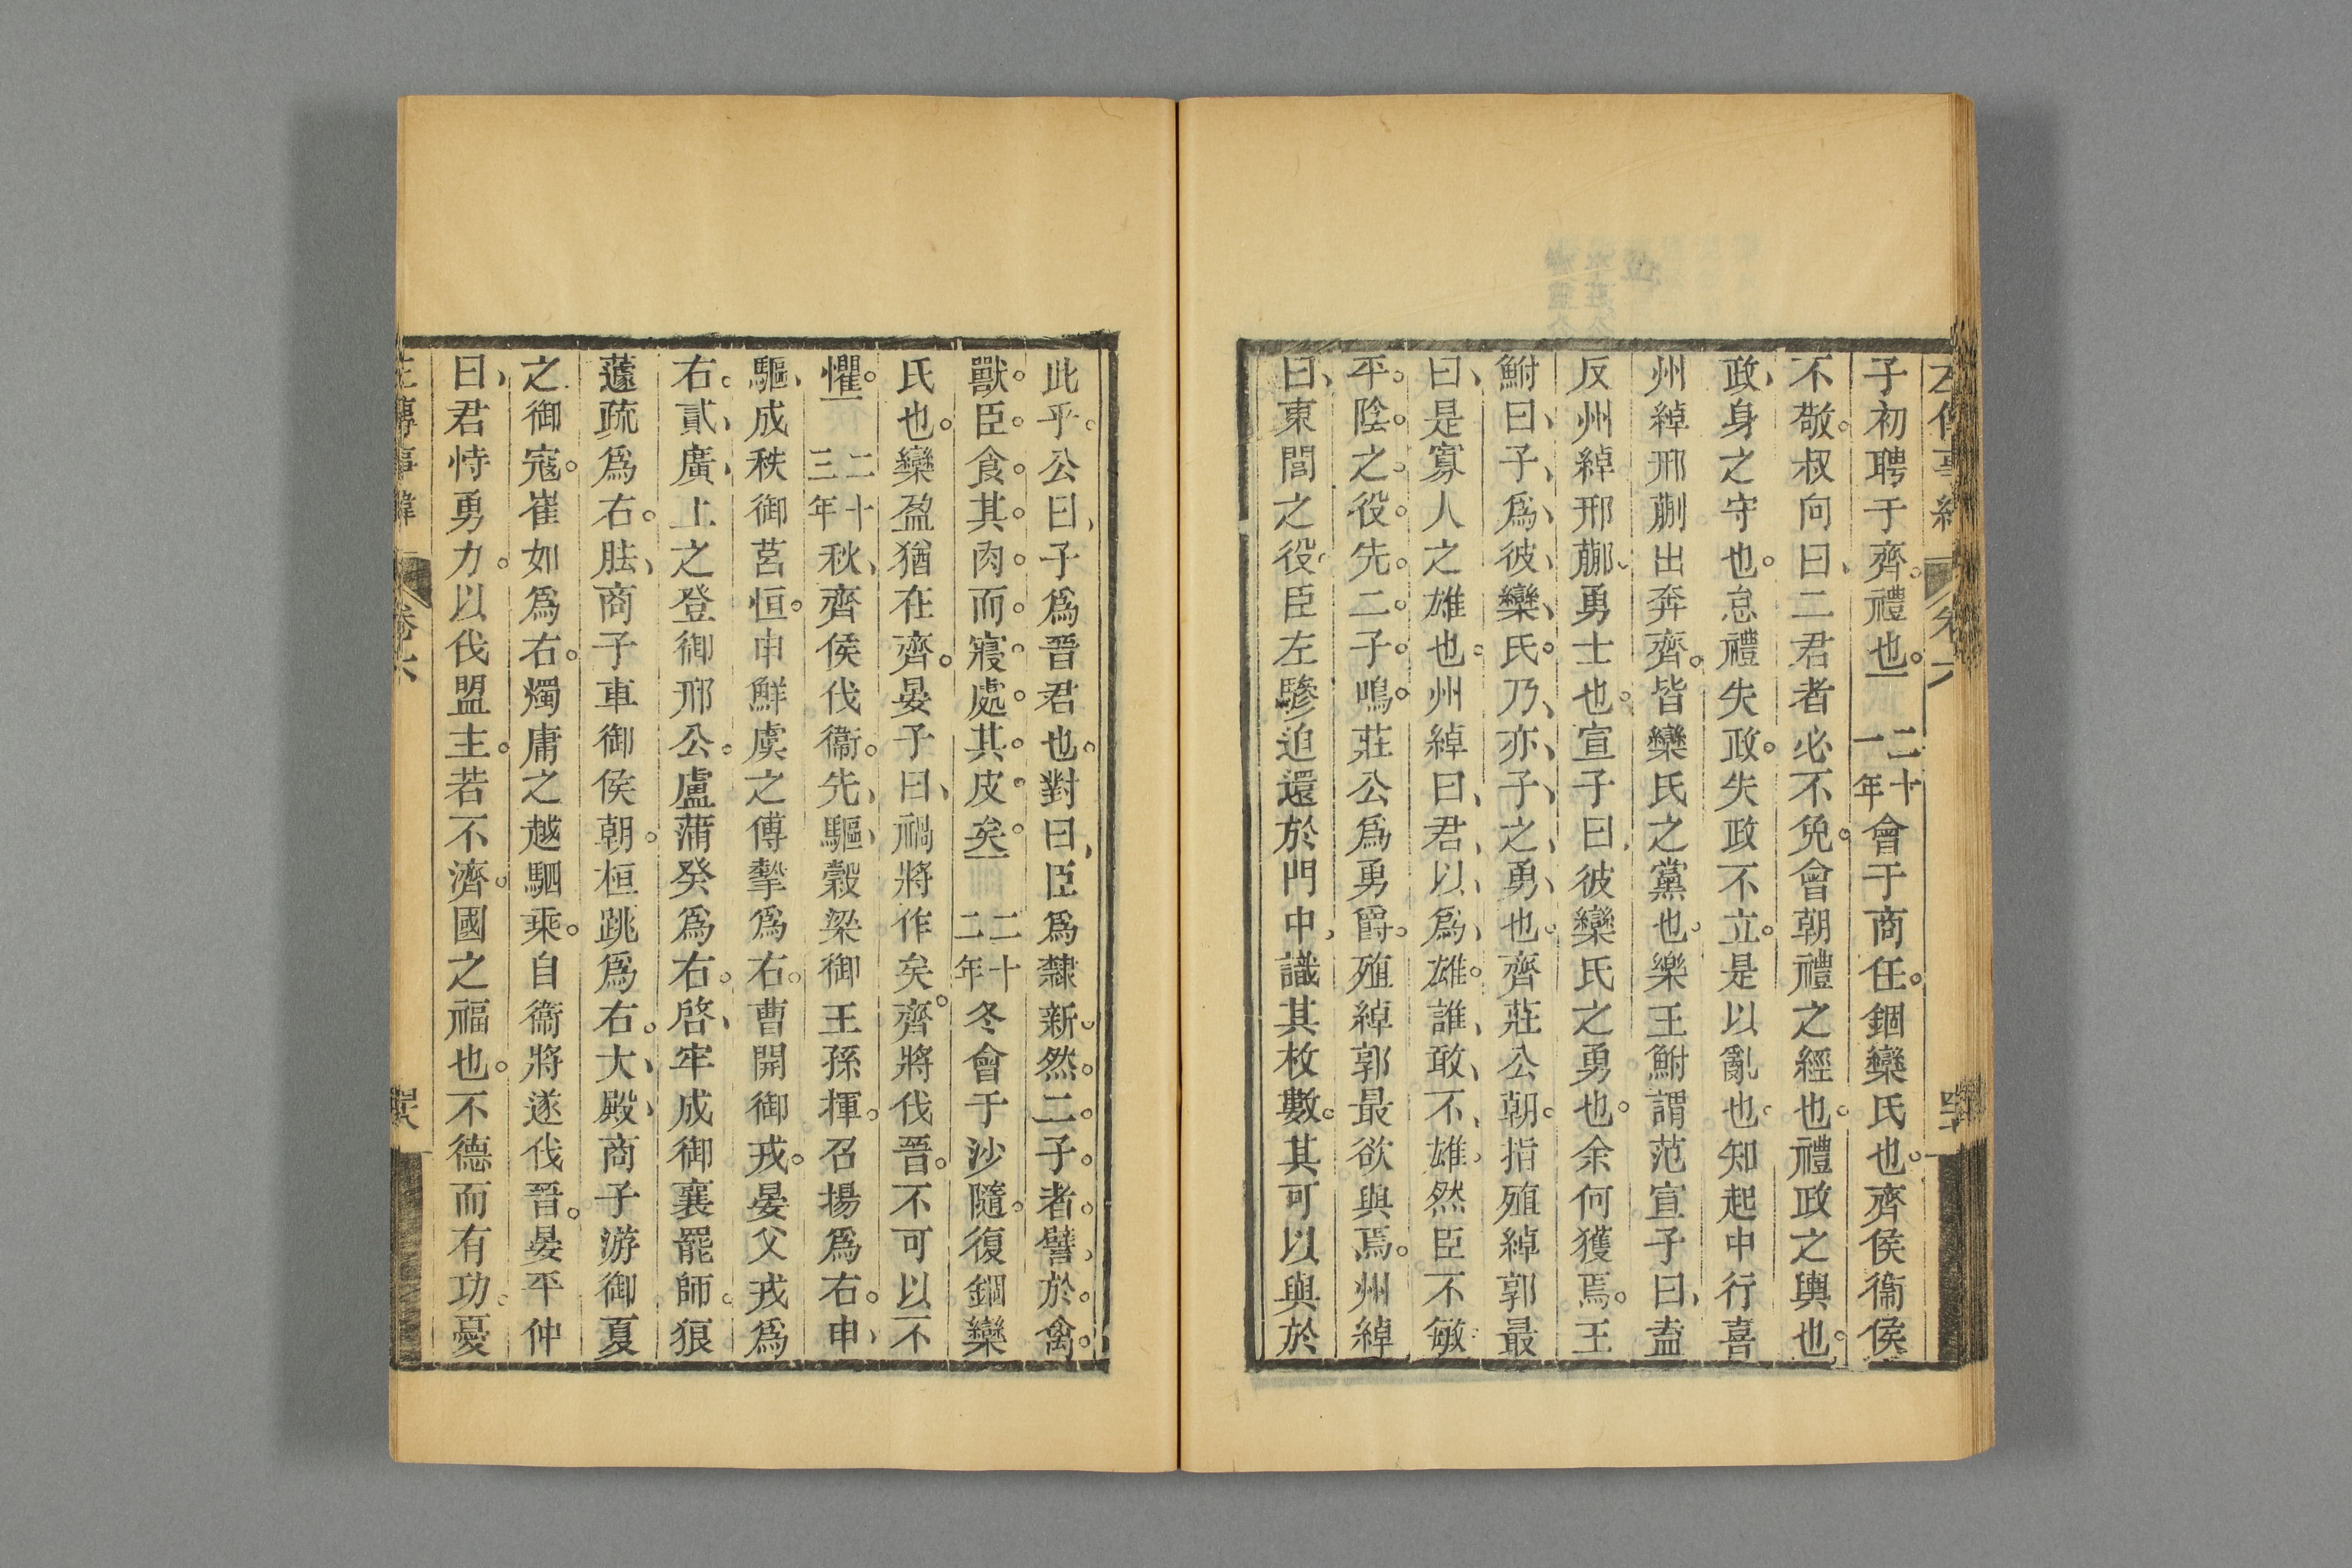 子初聘于齊。禮也。二十一年會于商任。錮欒氏也。齊侯衞侯
不敬。叔向曰、二君者必不免。會朝禮之經也。禮政之輿也。
政、身之守也。怠禮失政。失政不立。是以亂也。知起中行喜
州綽邢蒯出奔齊。皆欒氏之黨也。樂王鮒謂范宣子曰、盍
反州綽邢蒯、勇士也。宣子曰、彼欒氏之勇也。余何獲焉。王
鮒曰、子、爲、彼、欒、氏。乃、亦、子、之、勇、也。齊莊公朝。指殖綽郭最
曰、是寡人之雄也。州綽曰、君、以、爲、雄。誰、敢、不、雄。然臣不敏
平。陰。之。役。先。二。子。鳴。莊公爲勇爵。殖綽郭最欲與焉。州綽
曰、東閭之役。臣左驂迫還於門中、識其枚數。其可以與於
此乎。公曰、子爲晉君也。對曰、臣爲隸新。然。二。子。者。譬、於。禽。
獸。臣。食。其。肉。而。寢。處。其。皮。矣。二十二年冬會于沙隨。復錮欒
氏也。欒盈猶在齊。晏子曰、禍將作矣。齊將伐晉。不可以不
懼。二十三年秋、齊侯伐衞。先、驅、穀梁御王孫揮。召揚爲右。申、
驅、成秩御莒恒。申鮮虞之傅摯爲右。曹開御戎。晏父戎爲
右。貳、廣、上之登御邢公。盧蒲癸爲右。啓、牢成御襄罷師。狼
蘧疏爲右。胠、商子車御侯朝。桓跳爲右。大、殿、商子游御夏
之御寇。崔如爲右。燭庸之越駟乘。自衞將遂伐晉。晏平仲
曰、君恃勇力。以伐盟主。若不濟。國之福也。不德而有功。憂
左傳事緯 卷六